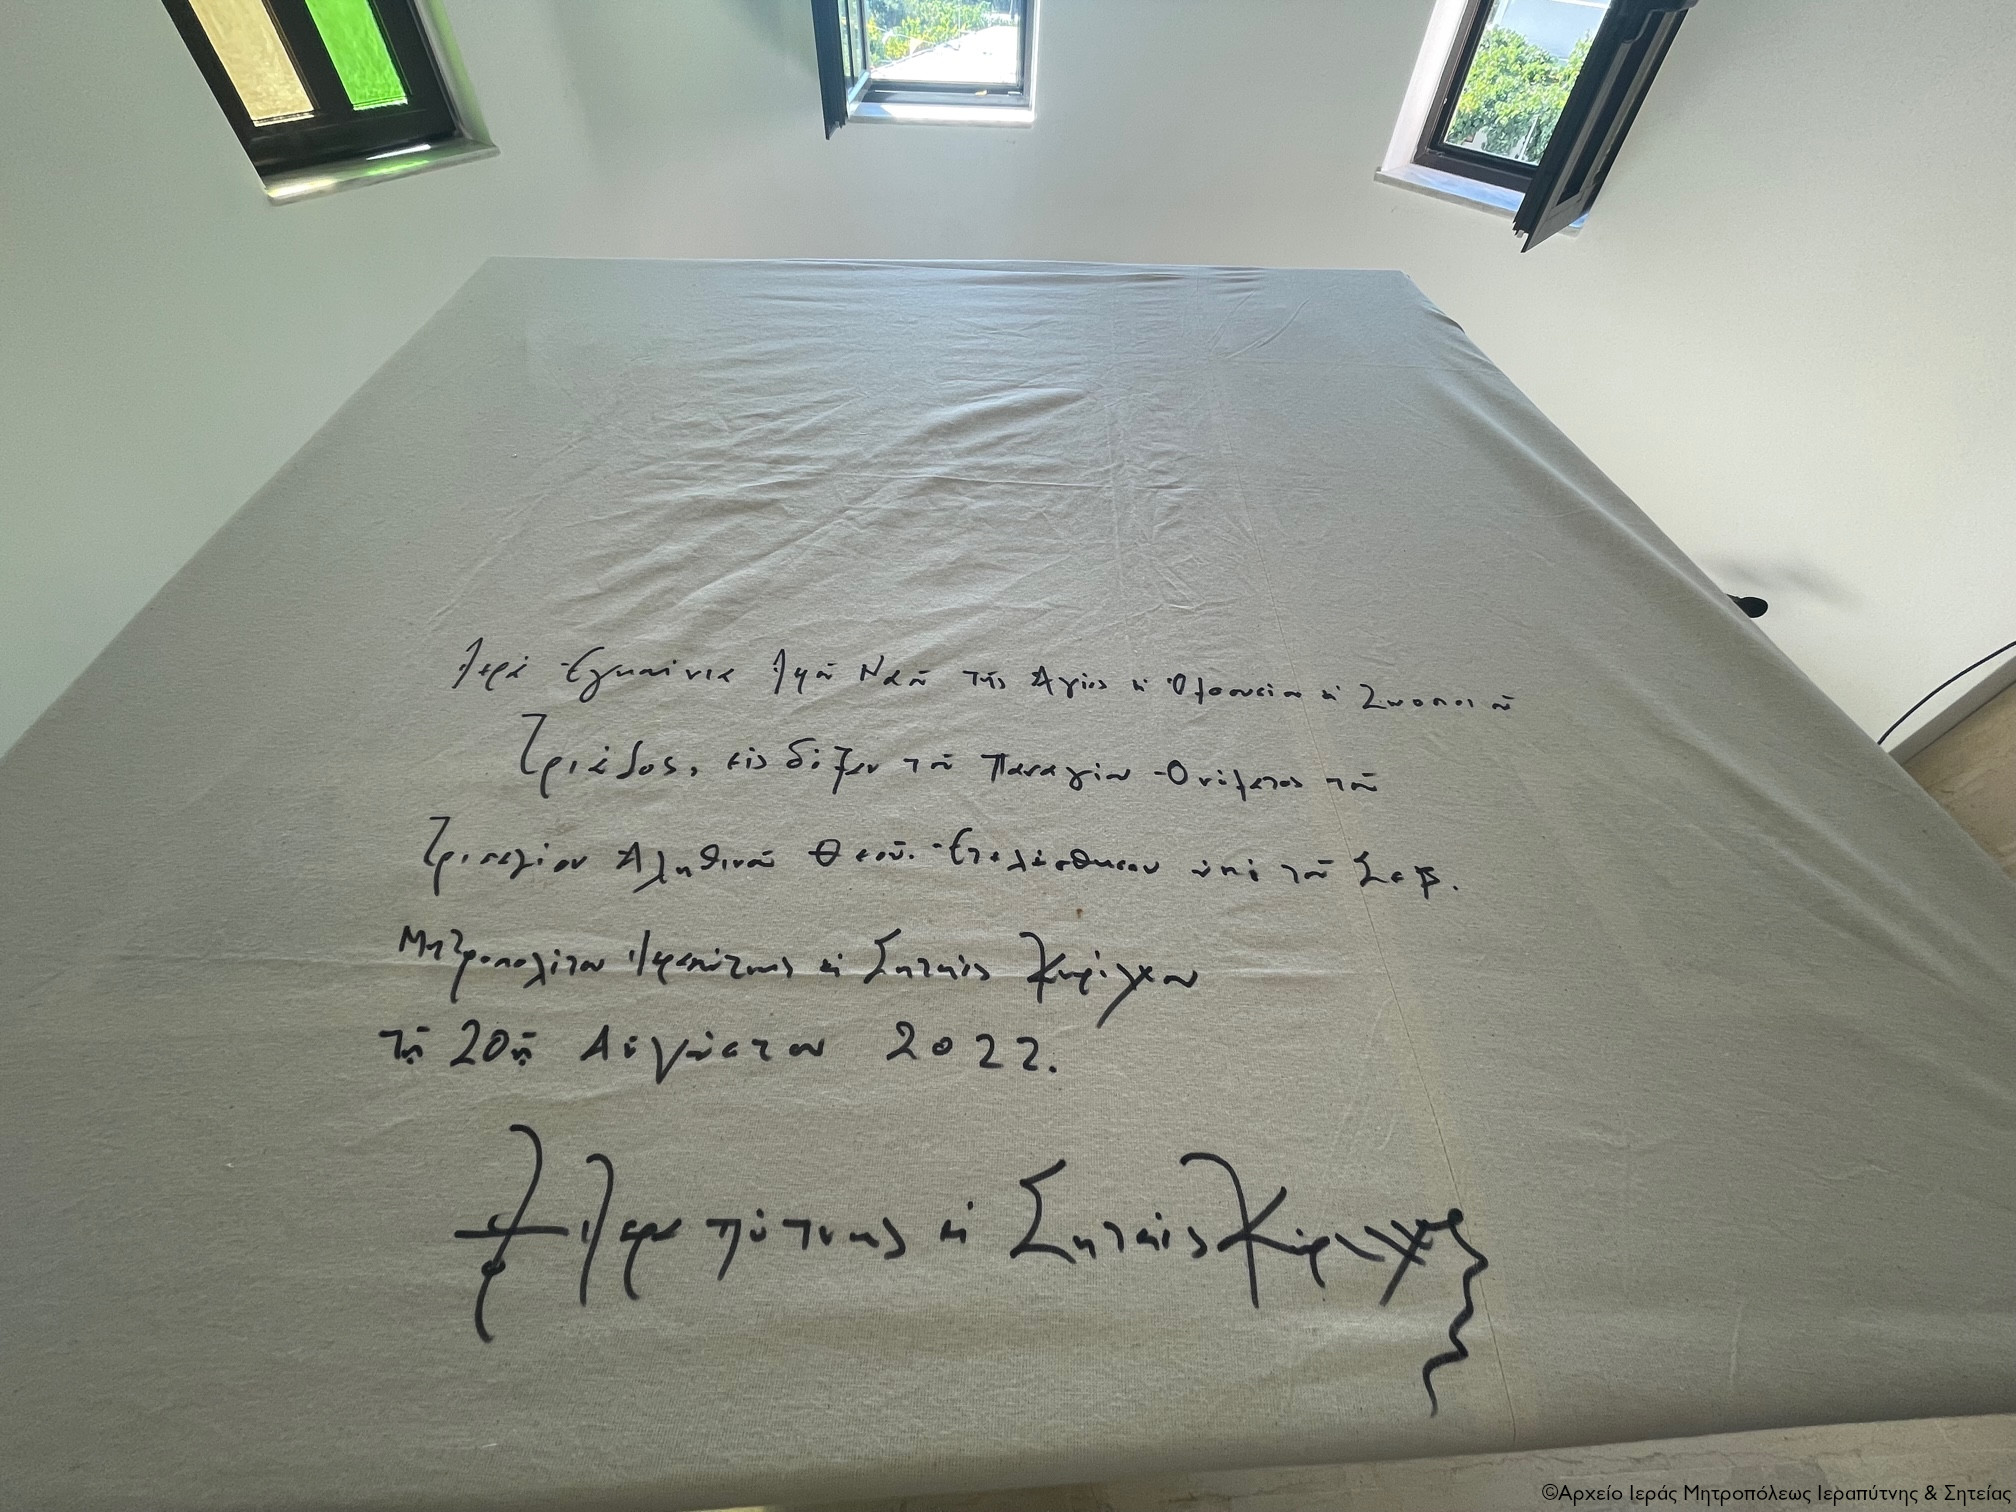 Ἱερά Ἐγκαίνια Ἱεροῦ Ναοῦ τῆς Ἁγίας κ Ὁμοουσίου κ Ζωοποιοῦ
Τριάδος, εἰς δόξαν τοῦ Παναγίου Ὀνόματος τοῦ
Τρισηλίου Ἀληθινοῦ Θεοῦ. Ἐτελέσθησαν ὑπό τοῦ Σεβ.
Μητροπολίτου Ἱεραπύτνης κ Σητείας Κυρίλλου
τῇ 20ῇ Αὐγούστου 2022.
Ἱεραπύτνης κ Σητείας Κύριλλος
©Αρχείο Ιεράς Μητροπόλεως Ιεραπύτνης & Σητείας